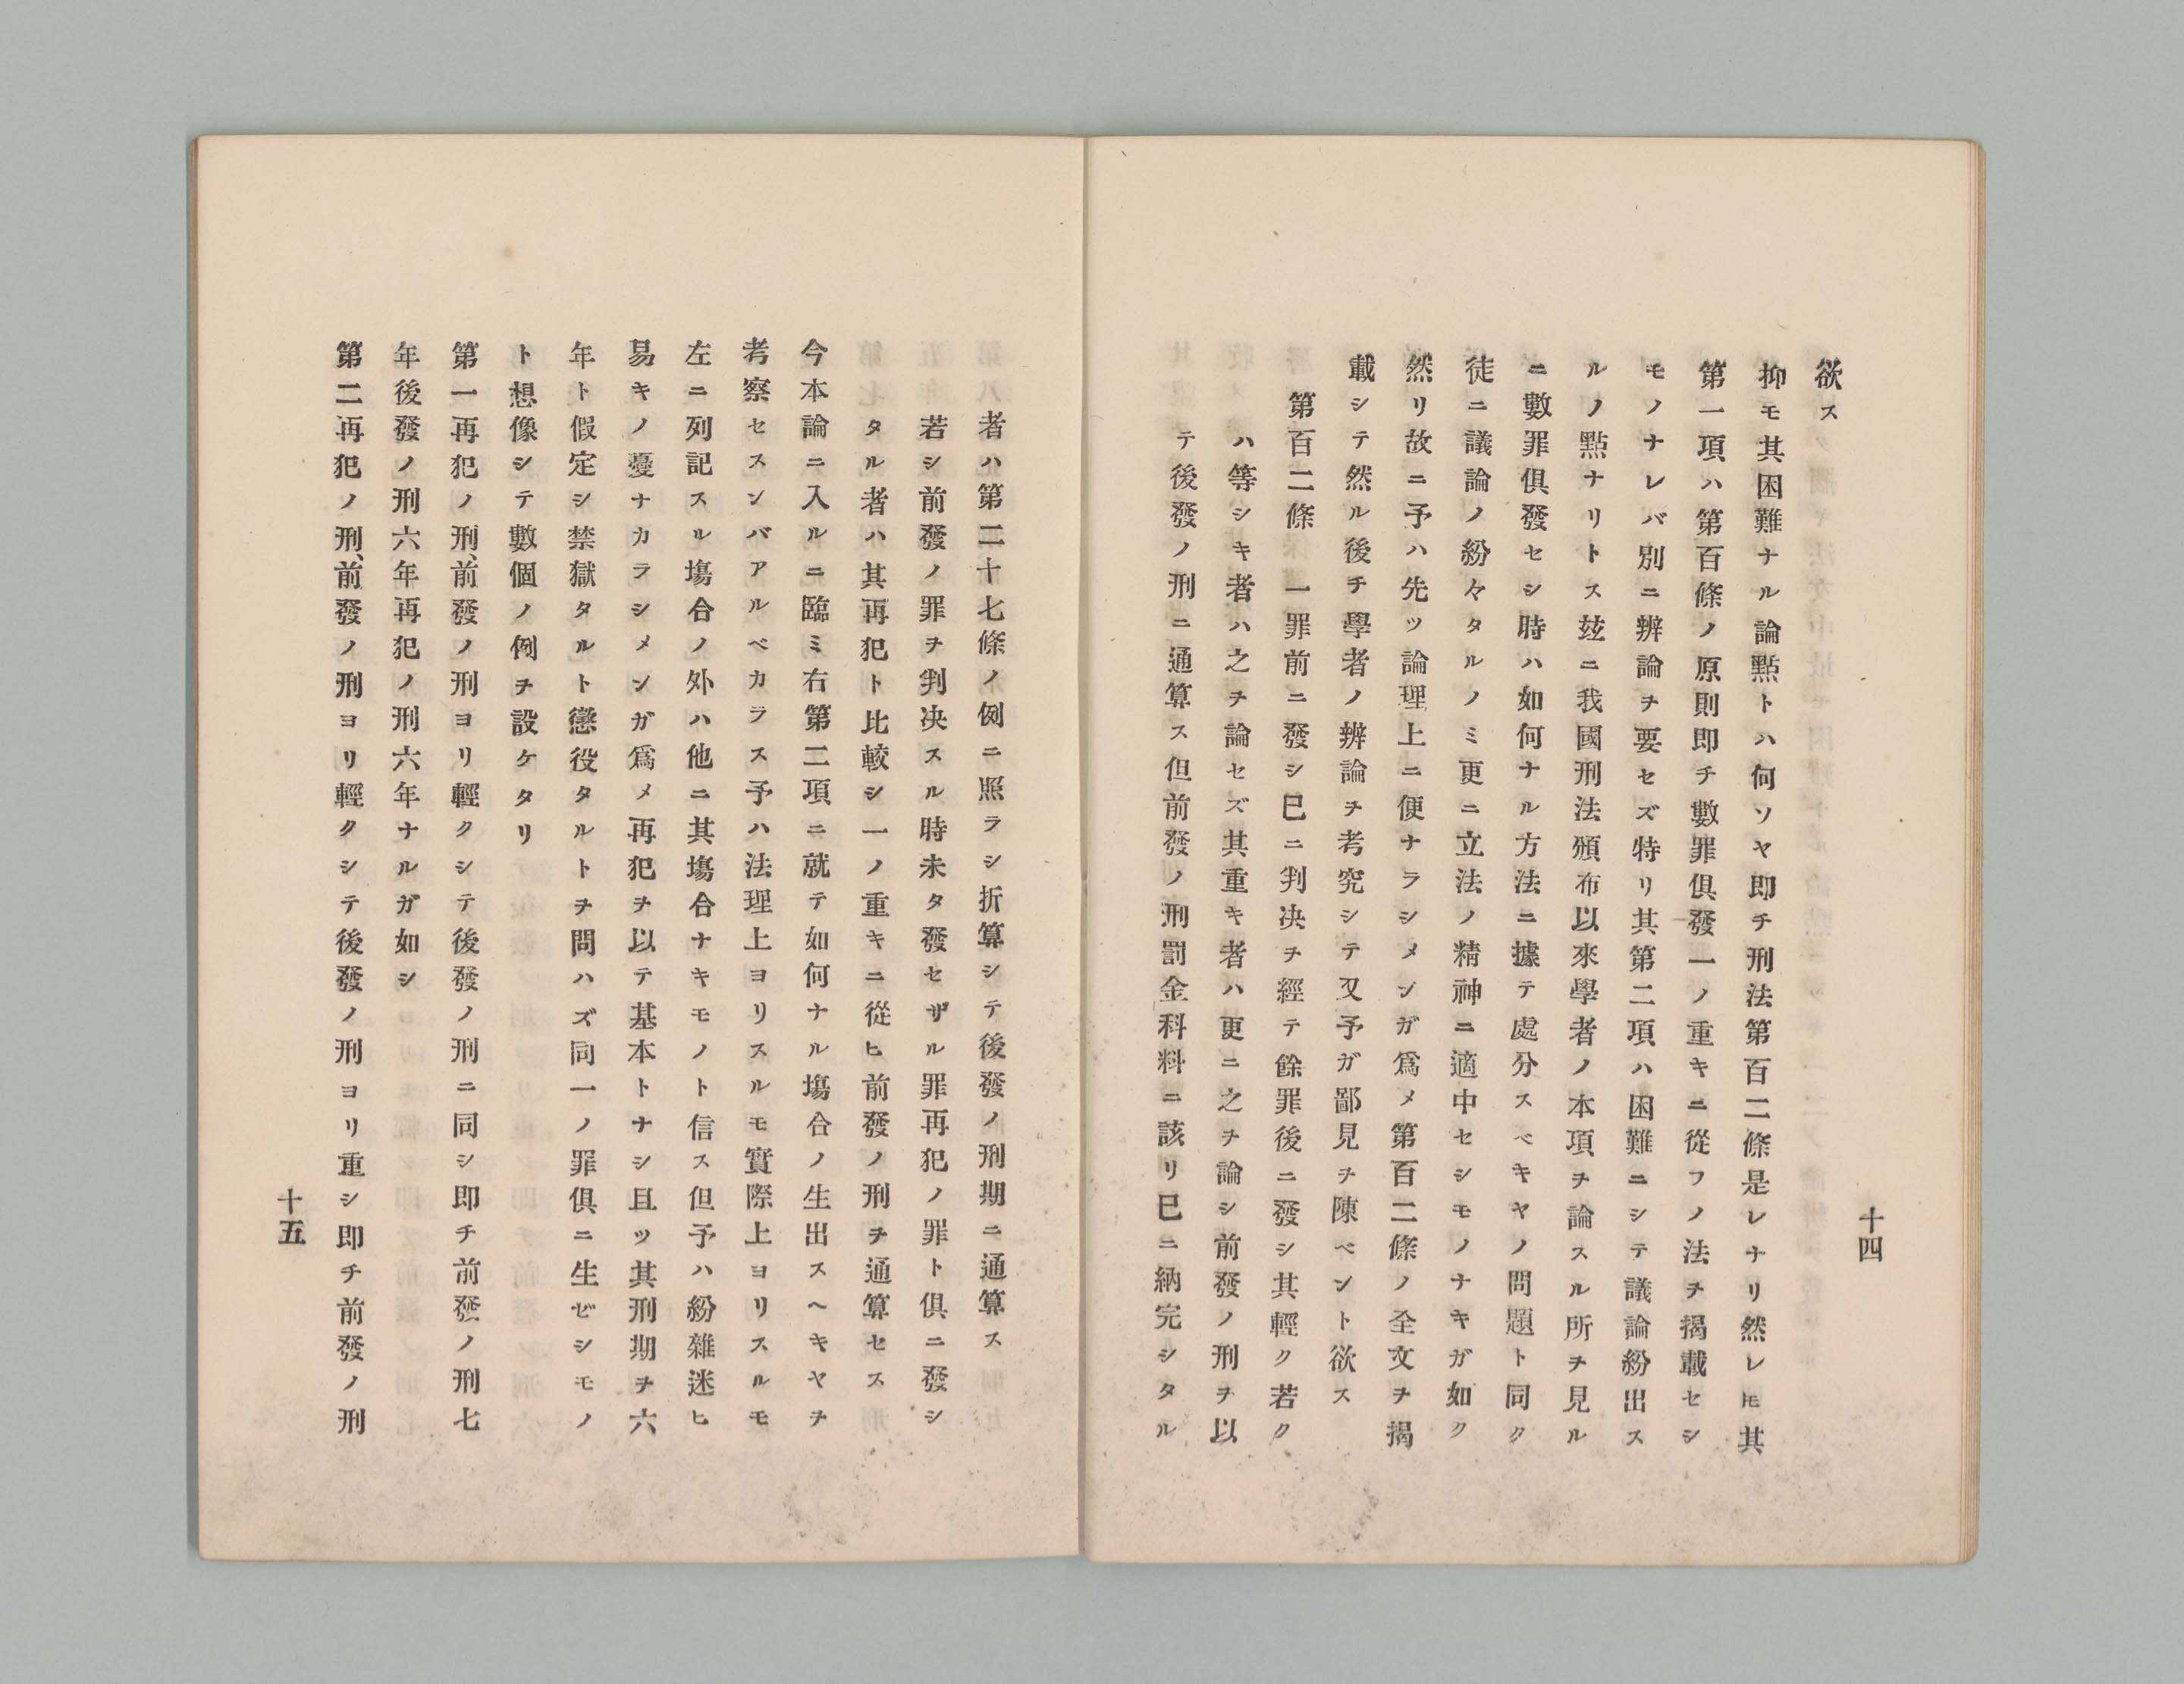 十四
欲ス
抑モ其困難ナル論點トハ何ソヤ即チ刑法第百二條是レナリ然レ𪜈其
第一項ハ第百條ノ原則即チ數罪俱發一ノ重キニ從フノ法ヲ揭載セシ
モノナレバ別ニ辨論ヲ要セズ特リ其第二項ハ困難ニシテ議論紛出ス
ルノ點ナリトス玆ニ我國刑法頒布以來學者ノ本項ヲ論スル所ヲ見ル
ニ數罪俱發セシ時ハ如何ナル方法ニ據テ處分スベキヤノ問題ト同ク
徒ニ議論ノ紛々タルノミ更ニ立法ノ精神ニ適中セシモノナキガ如ク
然リ故ニ予ハ先ツ論理上ニ便ナラシメンガ爲メ第百二條ノ全文ヲ揭
載シテ然ル後チ學者ノ辨論ヲ考究シテ又予ガ鄙見ヲ陳ベント欲ス
第百二條　一罪前ニ發シ巳ニ判决ヲ經テ餘罪後ニ發シ其輕ク若ク
ハ等シキ者ハ之ヲ論セズ其重キ者ハ更ニ之ヲ論シ前發ノ刑ヲ以
テ後發ノ刑ニ通算ス但前發ノ刑罰金科料ニ該リ巳ニ納完シタル
者ハ第二十七條ノ例ニ照ラシ折算シテ後發ノ刑期ニ通算ス
若シ前發ノ罪ヲ判决スル時未タ發セザル罪再犯ノ罪ト俱ニ發シ
タル者ハ其再犯ト比較シ一ノ重キニ從ヒ前發ノ刑ヲ通算セス
今本論ニ入ルニ臨ミ右第二項ニ就テ如何ナル塲合ノ生出スヘキヤヲ
考察セスンバアルベカラス予ハ法理上ヨリスルモ實際上ヨリスルモ
左ニ列記スル塲合ノ外ハ他ニ其塲合ナキモノト信ス但予ハ紛雜迷ヒ
易キノ憂ナカラシメンガ爲メ再犯ヲ以テ基本トナシ且ツ其刑期ヲ六
年ト假定シ禁獄タルト懲役タルトヲ問ハズ同一ノ罪俱ニ生ゼシモノ
ト想像シテ數個ノ例ヲ設ケタリ
第一再犯ノ刑、前發ノ刑ヨリ輕クシテ後發ノ刑ニ同シ即チ前發ノ刑七
年後發ノ刑六年再犯ノ刑六年ナルガ如シ
第二再犯ノ刑、前發ノ刑ヨリ輕クシテ後發ノ刑ヨリ重シ即チ前發ノ刑
十五